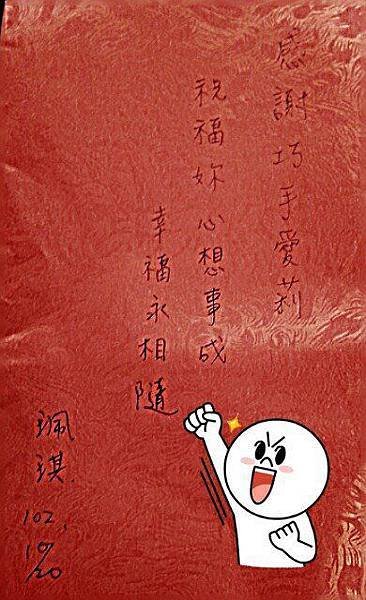 感謝巧手愛莉
祝福妳心想事成
幸福永相隨
珮琪
102.
10/20